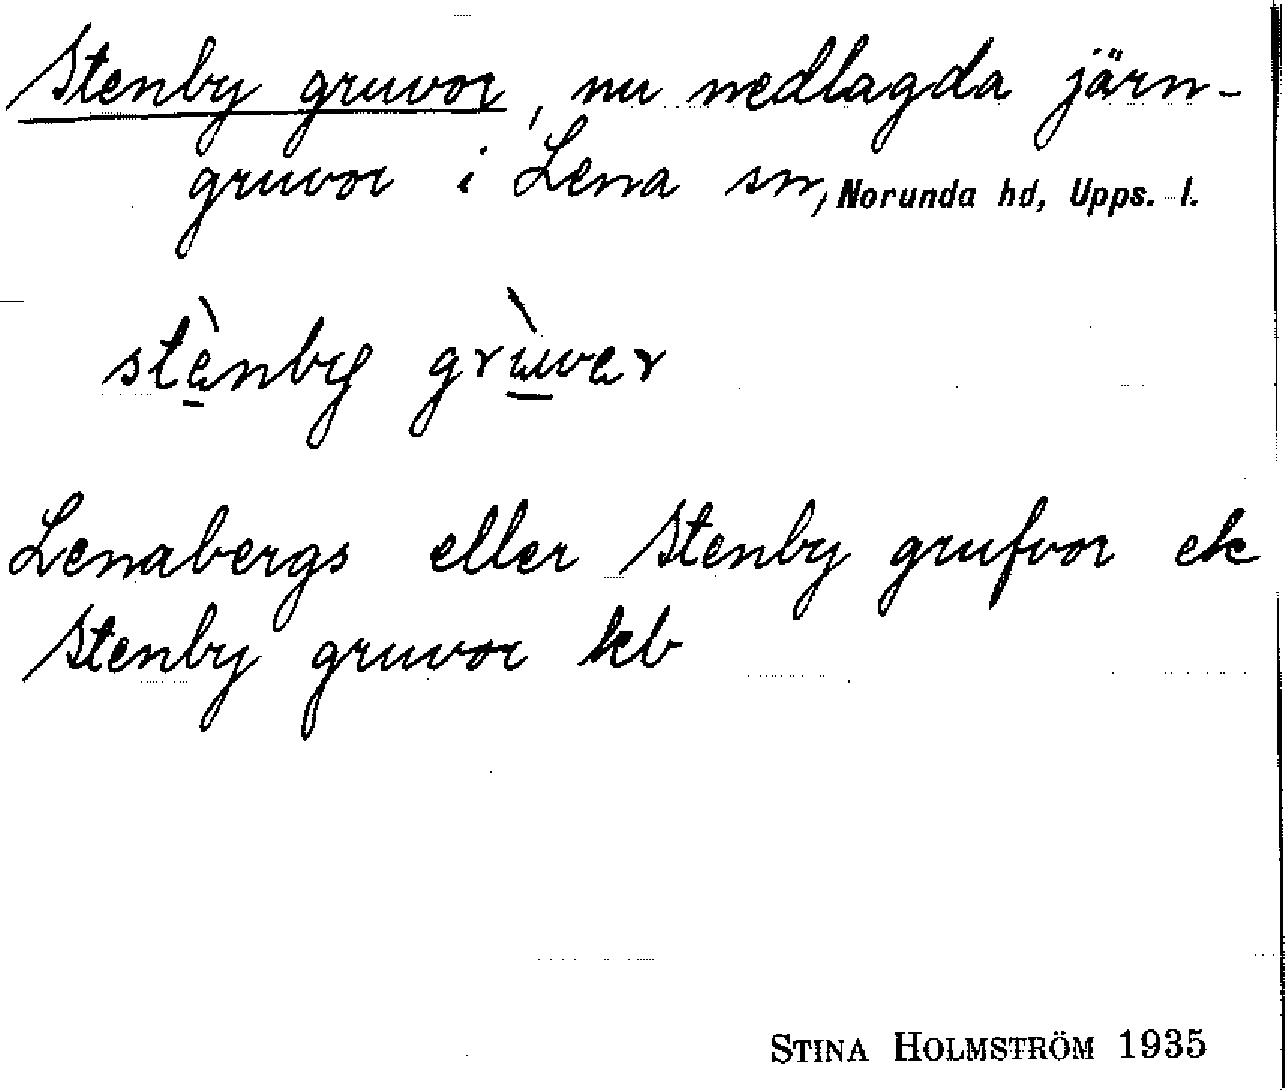 Stenby gruvor, nu nedlagda järn-
gruvor i Lena sn, Norunda hd, Upps. l.
stènby grùver
Lenabergs eller Stenby grufvor ek
Stenby gruvor kb
STINA HOLMSTRÖM 1935